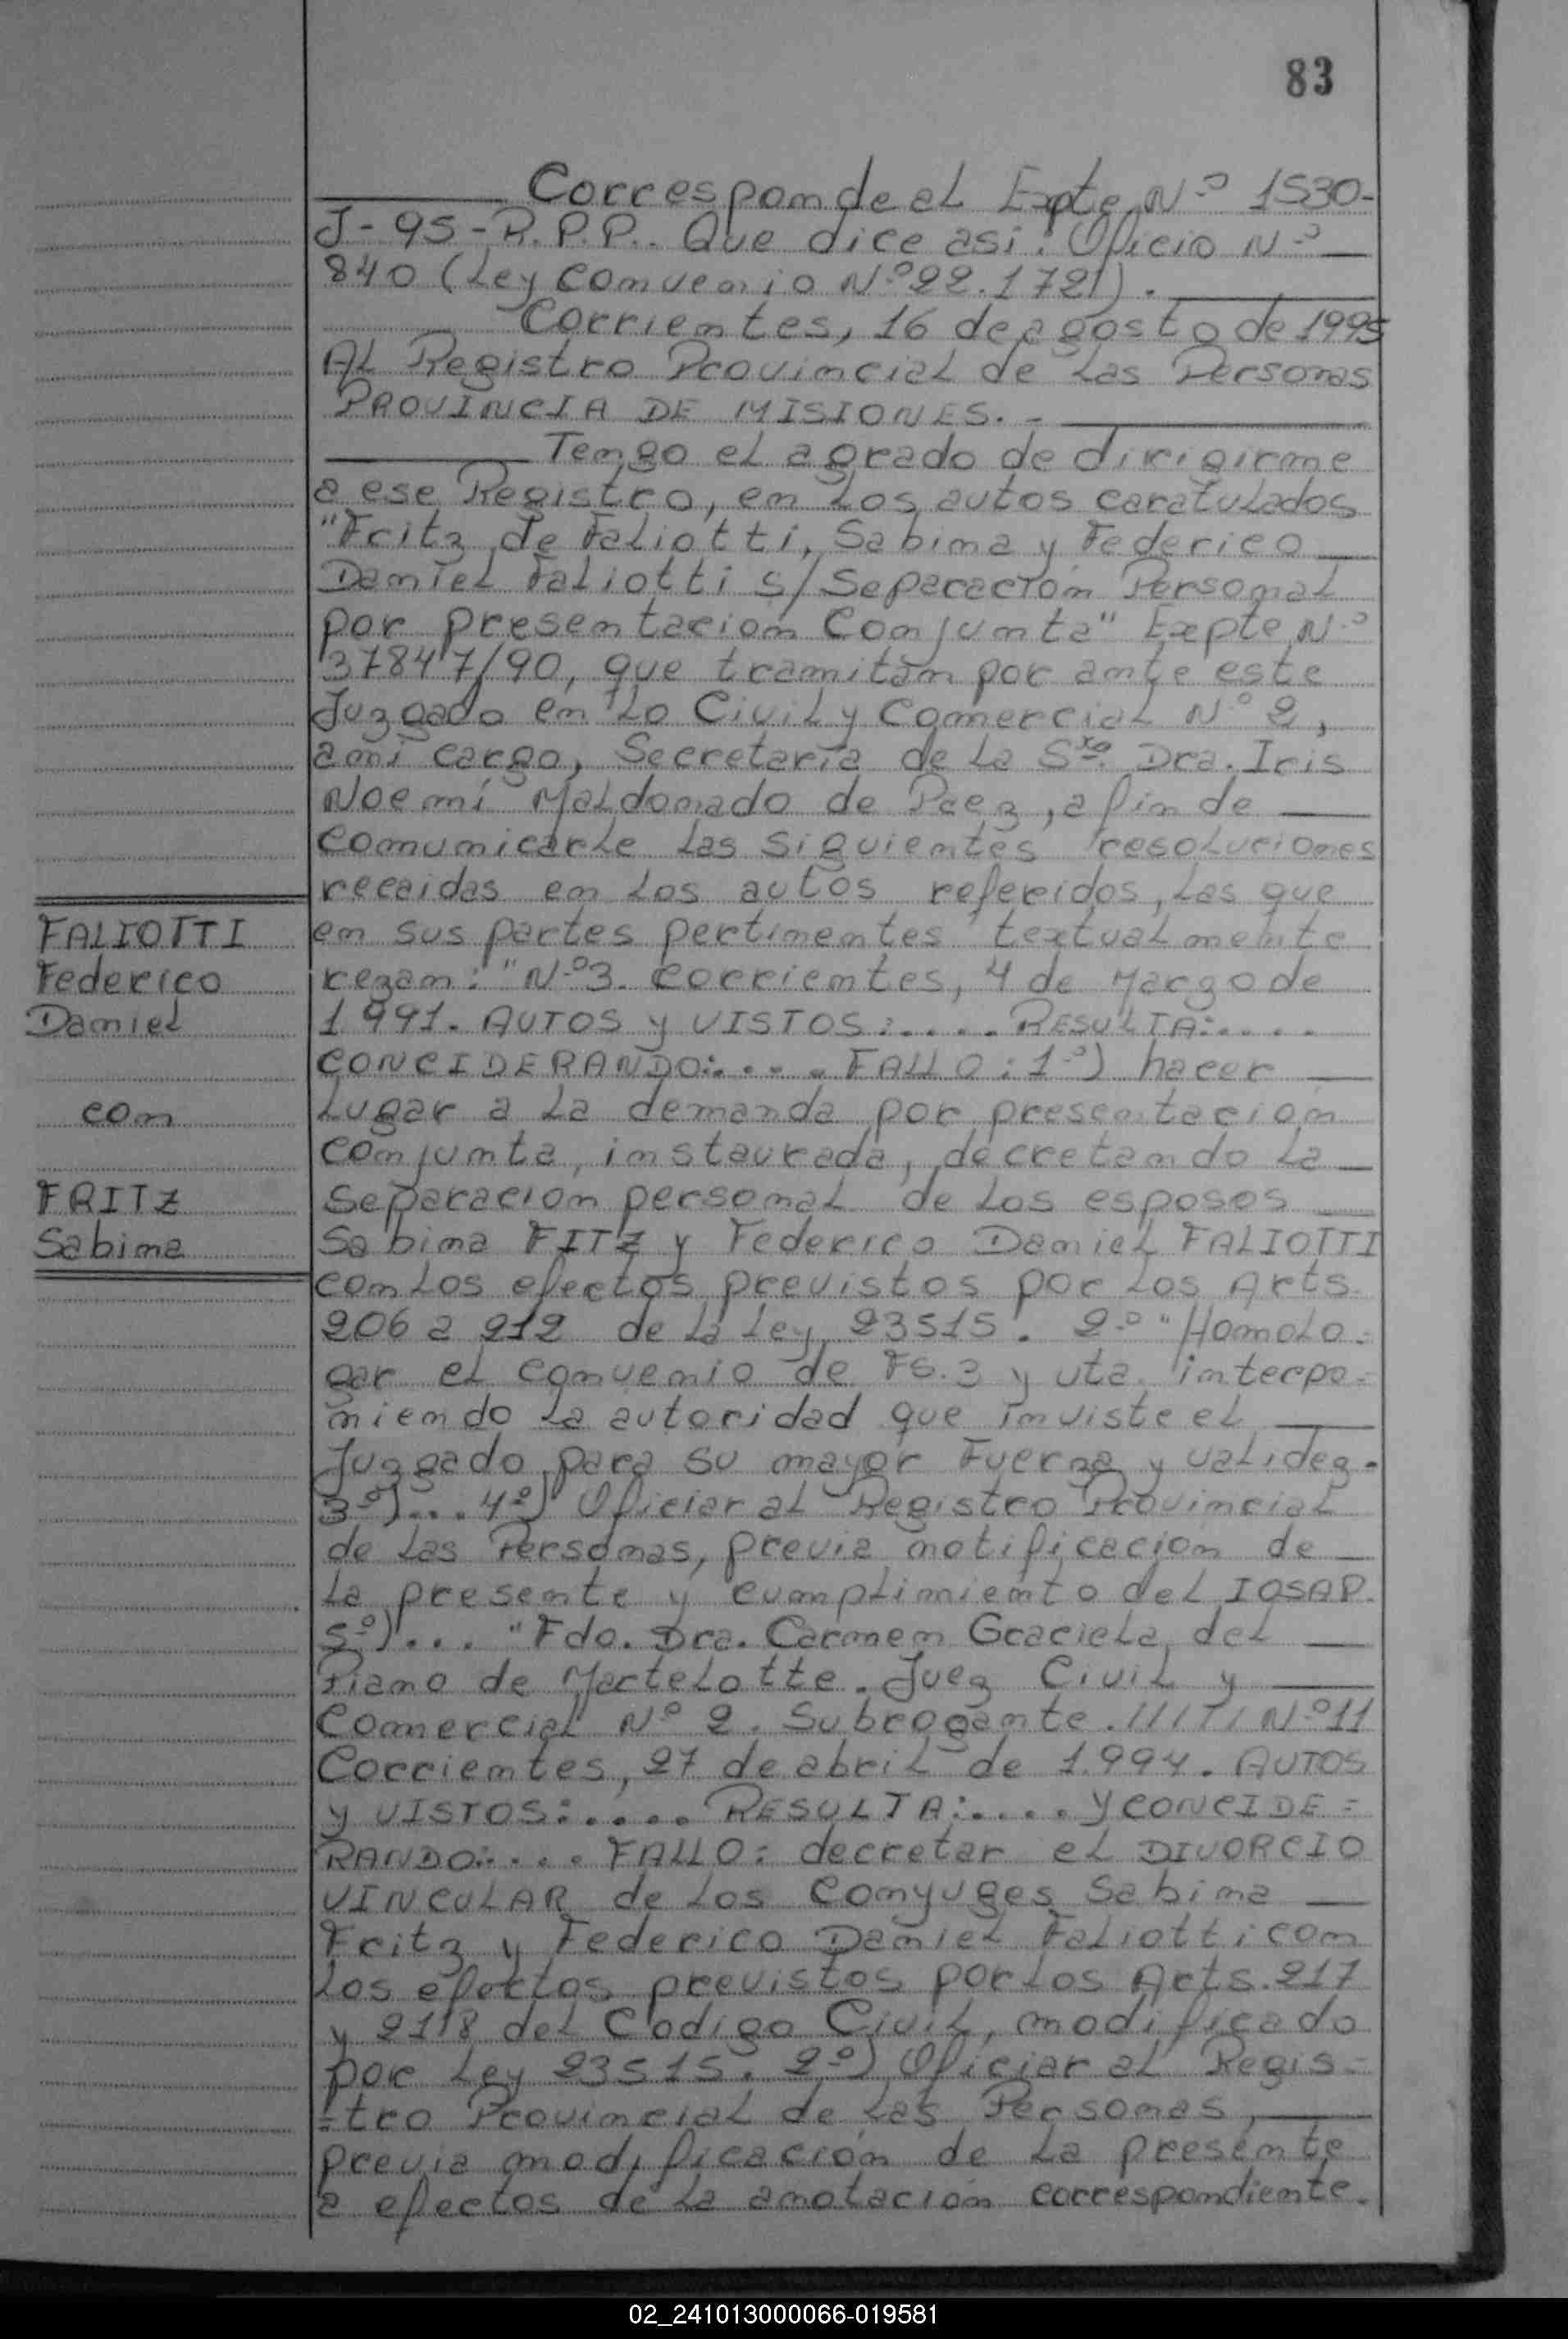 83
Corresponde al Expte N.º 1530-
J-95-R.P.P.. Que dice asi: Oficio N.º
840 (Ley Convenio N.º 22.172).
Corrientes, 16 de agosto de 1995
Al Registro Provincial de las Personas
PROVINCIA DE MISIONES.-
Tengo el agrado de dirigirme
a ese Registro, en los autos caratulados
"Fritz de Faliotti, Sabina y Federico
Daniel Faliotti s/Separación Personal
por presentacion Conjunta" Expte N.º
37847/90, que tramitan por ante este
Juzgado en lo Civil y Comercial Nº 2,
a mi cargo, Secretaría de la Sra. Dra. Iris
Noemí Maldonado de Paez, a fin de
comunicarle las siguientes resoluciones
recaidas en los autos referidos, las que
en sus partes pertinentes textualmente
rezan: "N.º3. Corrientes, 4 de Marzo de
1991. AUTOS y VISTOS:..... RESULTA:....
CONCIDERANDO:.... FALLO: 1º) hacer
lugar a la demanda por presentación
conjunta, instaurada, decretando la
separación personal de los esposos
Sabina FITZ y Federico Daniel FALIOTTI
con los efectos previstos por los Arts.
206 a 212 de la Ley 23515. 2º "Homolo=
gar el convenio de Fs. 3 y vta. interpo=
niendo la autoridad que inviste el
Juzgado para su mayor Fuerza y validez.
3º)... 4º) Oficiar al Registro Provincial
de las Personas, previa notificacion de
la presente y cumplimiento del IOSAP.
5º)... "Fdo. Dra. Carmen Graciela del
Piano de Martelotte. Juez Civil y
Comercial Nº 2. Subrogante. ///T/ N.º11
Corrientes, 27 de abril de 1.994. AUTOS
y VISTOS:..... RESULTA:.... y CONCIDE=
RANDO:.... FALLO: decretar el DIVORCIO
VINCULAR de los Conyuges Sabina
Fritz y Federico Daniel Faliotti con
los efectos previstos por los Arts. 217
y 2118 del Codigo Civil, modificado
por Ley 23515. 2º) Oficiar al Regis=
=tro Provincial de las Personas,
previa modificación de la presente
a efectos de la anotación correspondiente.
FALIOTTI
Federico
Daniel
con
FRITZ
Sabina
02_241013000066-019581